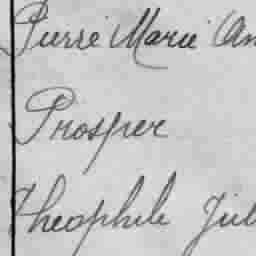 Pierre Marie An
Prosper
Théophile Jul